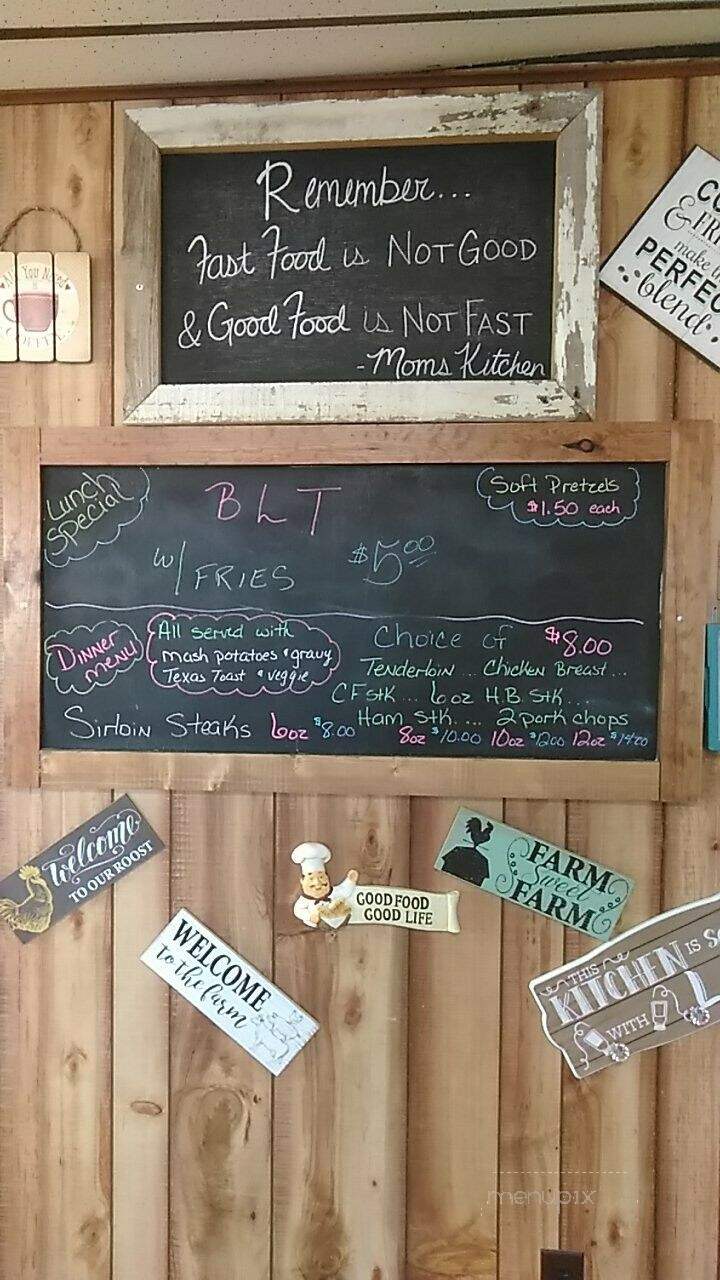 Remember...
Fast Food is NOT GOOD
& Good Food is NOT FAST
-Moms Kitchen
All You Need
COFFEE
& FR
make
PERFEC
blend
Lunch
Special
BLT
w/ FRIES $5.00
Soft Pretzels
$1.50 each
Dinner
menu
All served with
mash potatoes & gravy
Texas Toast & veggie
Choice of $8.00
Tenderloin... Chicken Breast...
CF Stk... 6oz H.B. Stk...
Ham Stk.... 2 pork chops
Sirloin Steaks 6oz $8.00 8oz $10.00 10oz $12.00 12oz $14.00
Welcome
TO OUR ROOST
WELCOME
to the farm
GOOD FOOD
GOOD LIFE
FARM
Sweet
FARM
THIS
KITCHEN IS S
WITH L
menupix